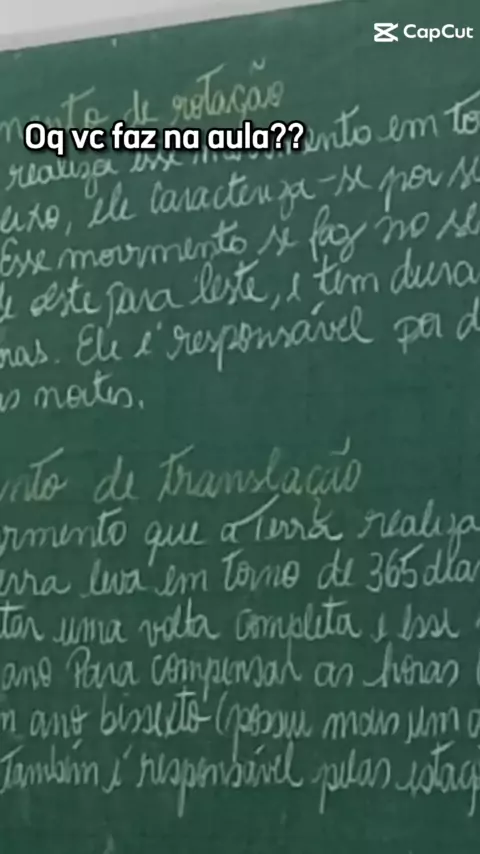 CapCut
Oq vc faz na aula??
mento de rotação
realiza esse movimento em to
eixo, ele caracteriza-se por se
Esse movimento se faz no se
de oeste para leste, e tem dura
ras. Ele é responsável por d
as noites.
nto de translação
vimento que a Terra realiza
erra leva em torno de 365 dias
tar uma volta completa e esse
ano Para compensar as horas
m ano bissexto (possui mais um
Também é responsável pelas estaç